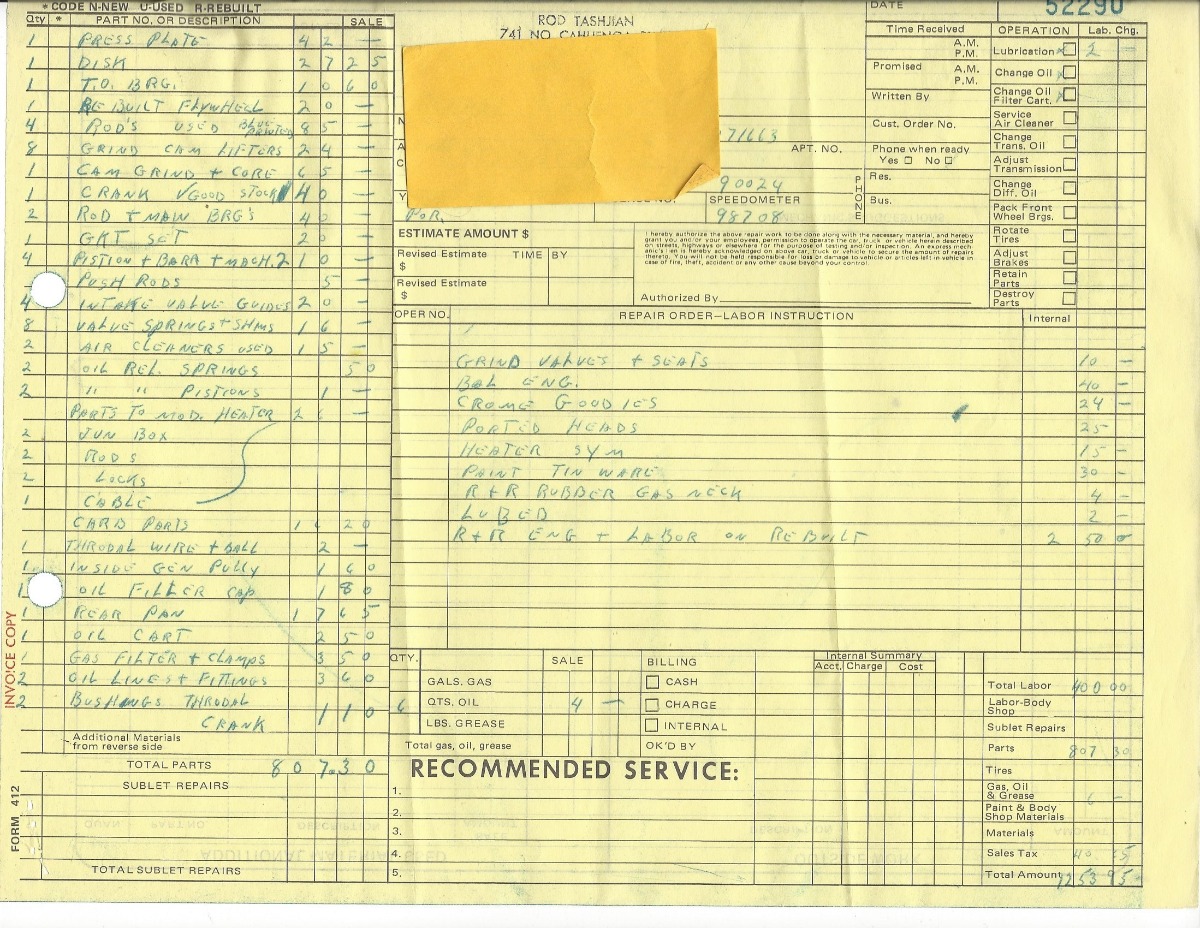 *CODE N-NEW U-USED R-REBUILT
Qty * PART NO. OR DESCRIPTION SALE
1 PRESS PLATE 42 —
1 DISK 27 25
1 T.O. BRG. 10 60
1 REBUILT FLYWHELL 20 —
4 ROD'S USED 85 —
8 GRIND CAM LIFTERS 24 —
1 CAM GRIND + CORE 65 —
1 CRANK VGOOD STOCK 40 —
2 ROD + MAIN BRG'S 40 —
1 GKT SET 20 —
4 PISTION + BARR + MACH. 210 —
PUSH RODS 5 —
4 INTAKE VALVE GUIDES 20 —
8 VALVE SPRINGS + SHMS 16 —
2 AIR CLEANERS USED 15 —
2 OIL REL. SPRINGS 50
2 " " PISTIONS 1 —
PARTS TO MOD. HEATER 26 —
2 JUN BOX
2 RODS
2 LOCKS
1 CABLE
CARD PARTS 16 20
1 THRODAL WIRE + BALL 2 —
1 INSIDE GEN PULLY 1 60
1 OIL FILLER CAP 1 80
1 REAR PAN 17 65
1 OIL CART 2 50
1 GAS FILTER + CLAMPS 3 50
2 OIL LINES + FITTINGS 3 60
2 BUSHANGS THRODAL
CRANK 1 10
Additional Materials
from reverse side
TOTAL PARTS 807.30
SUBLET REPAIRS
TOTAL SUBLET REPAIRS
INVOICE COPY
FORM 412
ROD TASHJIAN
741 NO. CAHUENGA
71663
APT. NO.
90024
SPEEDOMETER
98708
POR.
PHONE
ESTIMATE AMOUNT $
Revised Estimate TIME BY
$
Revised Estimate
$
I hereby authorize the above repair work to be done along with the necessary material, and hereby
grant you and/or your employees, permission to operate the car, truck or vehicle herein described
on streets, highways or elsewhere for the purpose of testing and/or inspection. An express mech-
anic's lien is hereby acknowledged on above car, truck or vehicle to secure the amount of repairs
thereto. You will not be held responsible for loss or damage to vehicle or articles left in vehicle in
case of fire, theft, accident or any other cause beyond your control.
Authorized By
DATE
52290
Time Received
A.M.
P.M.
Promised A.M.
P.M.
Written By
Cust. Order No.
Phone when ready
Yes No
Res.
Bus.
OPERATION Lab. Chg.
Lubrication 2 —
Change Oil
Change Oil
Filter Cart.
Service
Air Cleaner
Change
Trans. Oil
Adjust
Transmission
Change
Diff. Oil
Pack Front
Wheel Brgs.
Rotate
Tires
Adjust
Brakes
Retain
Parts
Destroy
Parts
OPER NO. REPAIR ORDER—LABOR INSTRUCTION Internal
GRIND VALVES + SEATS 10 —
BAL ENG. 40 —
CROME GOODIES 24 —
PORTED HEADS 25 —
HEATER SYM 15 —
PAINT TIN WARE 30 —
R+R RUBBER GAS NECK 4 —
LUBED 2 —
R+R ENG + LABOR ON REBUILT 2 50
QTY. SALE BILLING
GALS. GAS CASH
6 QTS. OIL 4 — CHARGE
LBS. GREASE INTERNAL
Total gas, oil, grease OK'D BY
RECOMMENDED SERVICE:
1.
2.
3.
4.
5.
Internal Summary
Acct. Charge Cost
Total Labor 400 00
Labor-Body
Shop
Sublet Repairs
Parts 807 30
Tires
Gas, Oil
& Grease 6 —
Paint & Body
Shop Materials
Materials
Sales Tax 40
Total Amount 1253 95